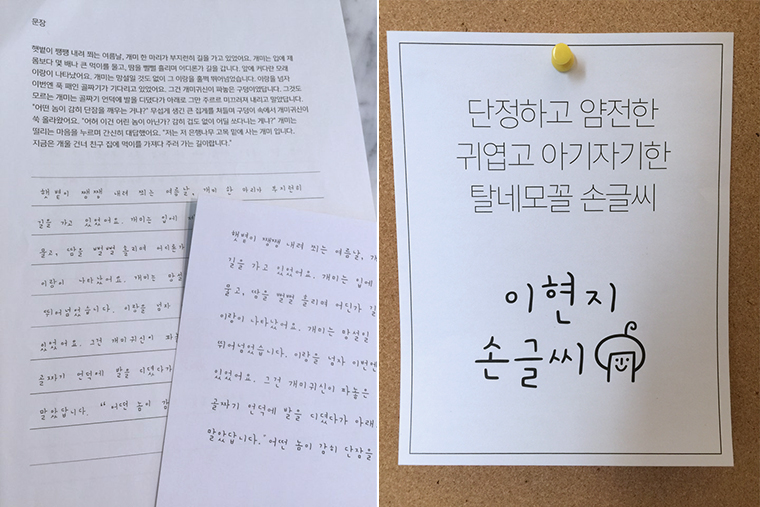 문장
햇볕이 쨍쨍 내려 쬐는 여름날, 개미 한 마리가 부지런히 길을 가고 있었어요. 개미는 입에 제
몸보다 몇 배나 큰 먹이를 물고, 땀을 뻘뻘 흘리며 어디론가 길을 갑니다. 앞에 커다란 모래
이랑이 나타났어요. 개미는 망설일 것도 없이 그 이랑을 훌쩍 뛰어넘었습니다. 이랑을 넘자
이번엔 푹 패인 골짜기가 기다리고 있었어요. 그건 개미귀신이 파놓은 구덩이였답니다. 그것도
모르는 개미는 골짜기 언덕에 발을 디뎠다가 아래로 그만 주르르 미끄러져 내리고 말았답니다.
“어떤 놈이 감히 단잠을 깨우는 거냐?” 무섭게 생긴 큰 집게를 쳐들며 구덩이 속에서 개미귀신이
쑥 올라왔어요. “어허 이건 어린 놈이 아닌가? 감히 겁도 없이 어딜 쏘다니는 게냐?” 개미는
떨리는 마음을 누르며 간신히 대답했어요. “저는 저 은행나무 고목 밑에 사는 개미 입니다.
지금은 개울 건너 친구 집에 먹이를 가져다 주러 가는 길이랍니다.”
햇볕이 쨍쨍 내려 쬐는 여름날, 개미 한 마리가 부지런히
길을 가고 있었어요. 개미는 입에
물고, 땀을 뻘뻘 흘리며 어디론가
이랑이 나타났어요. 개미는 망설
뛰어넘었습니다. 이랑을 넘자
있었어요. 그건 개미귀신이 파놓
골짜기 언덕에 발을 디뎠다가
말았답니다. “어떤 놈이 감
햇볕이 쨍쨍 내려 쬐는 여름날, 개
길을 가고 있었어요. 개미는 입에
물고, 땀을 뻘뻘 흘리며 어딘가 길
이랑이 나타났어요. 개미는 망설일
뛰어넘었습니다. 이랑을 넘자 이번엔
있었어요. 그건 개미귀신이 파놓은
골짜기 언덕에 발을 디뎠다가 아래
말았답니다.“어떤 놈이 감히 단잠을
단정하고 얌전한
귀엽고 아기자기한
탈네모꼴 손글씨
이현지
손글씨